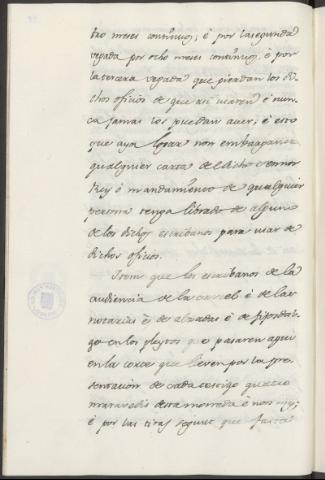 tro meses continuos; é por la segunda
vegada por ocho meses continuos, é por
la tercera vegada que pierdan los di-
chos oficios de que asi usaren é nun-
ca jamas los puedan aver; é esto
que aya logar non embargante
qualquier carta del dicho Sennor
Rey é mandamiento de qualquier
persona tenga librado de alguno
de los dichos escribanos para usar de
dichos oficios.
Item que los escribanos de la
audiencia de la carcel é de las
notarias é de alzadas é de fijosdal-
go en los pleytos que pasaren aqui
en la corte que lieven por la pre-
sentacion de cada testigo quatro
maravedis desta moneda é non mas;
é por las tiras segunt que fasta